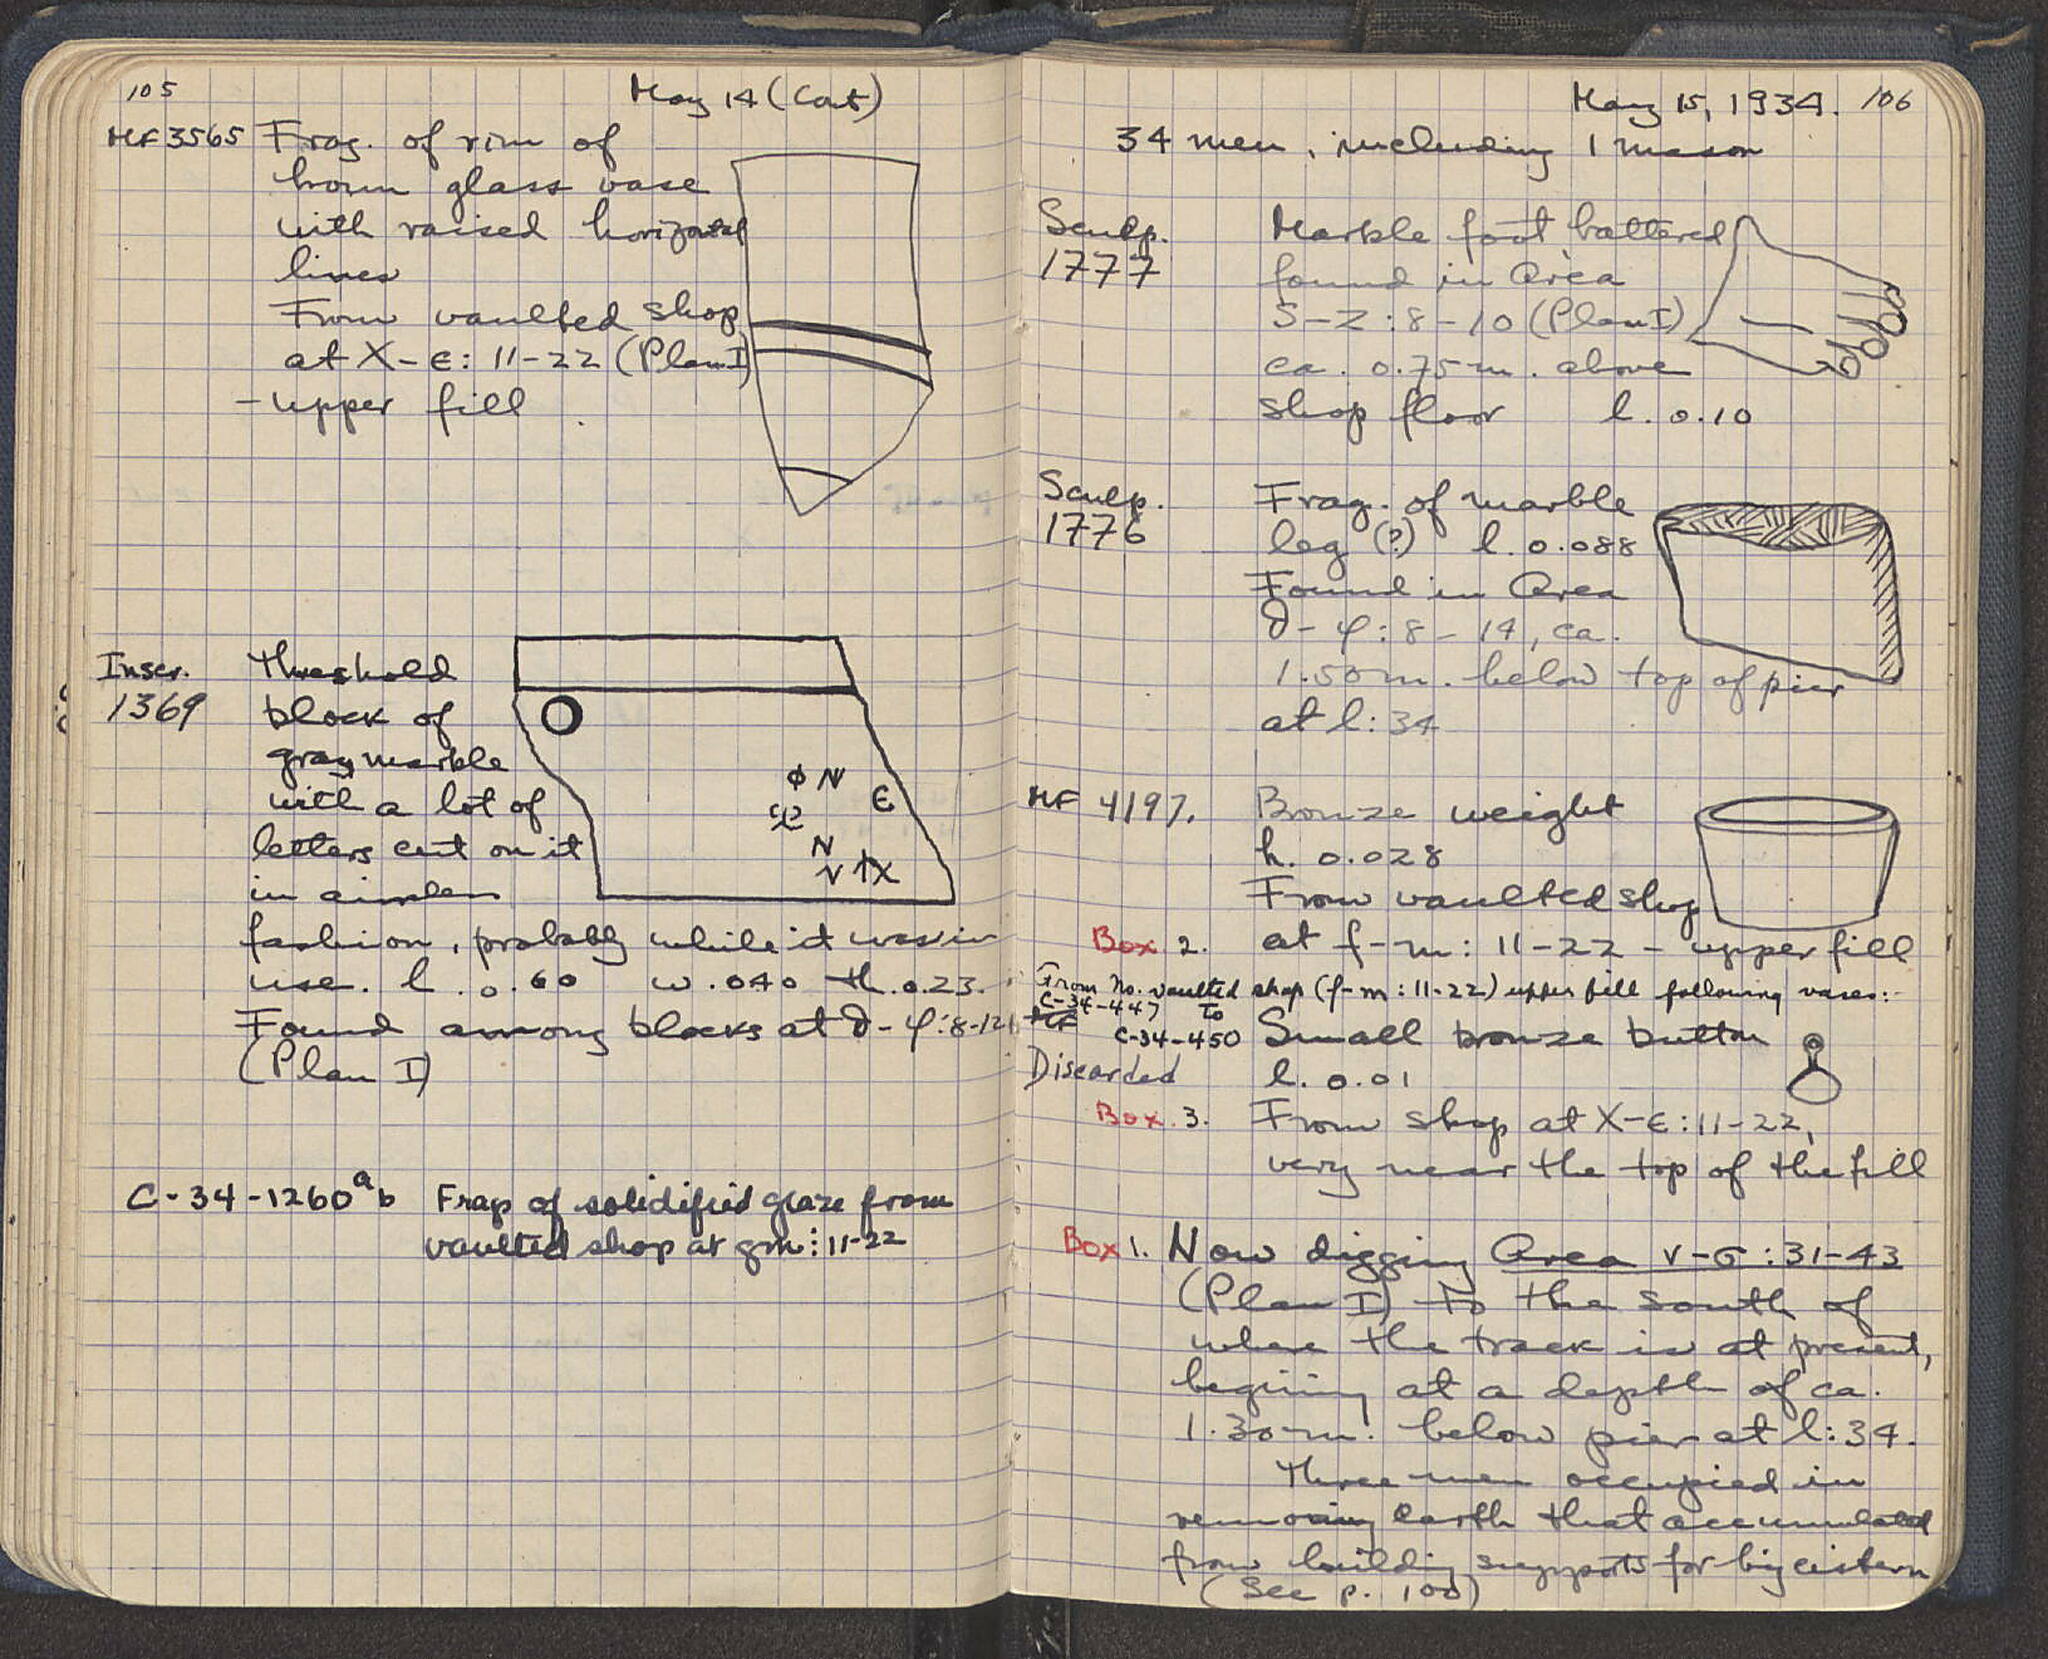 105
May 14 (Cont)
MF 3565 Frag. of rim of
brown glass vase
with raised horizontal
lines
From vaulted shop
at X-ε: 11-22 (Plan I)
- upper fill
Inscr. Threshold
1369 block of
gray marble
with a lot of
letters cut on it
in
fashion, probably while it was in
use. l. 0.60 w. 0.40 th. 0.23.
Found among blocks at ∂-φ: 8-12
(Plan I)
ϕ N
ϵ
N
V
X
C-34-1260 a b Frag of solidified glaze from
vaulted shop at gm: 11-22
May 15, 1934. 106
34 men, including 1 mason
Sculp. Marble foot, battered
1777 found in Area
S-Z: 8-10 (Plan I)
ca. 0.75 m. above
shop floor l. 0.10
Sculp. Frag. of marble
1776 leg (?) l. 0.088
Found in Area
∂-φ: 8-14, ca.
1.50 m. below top of pier
at l: 34
MF 4197. Bronze weight
h. 0.028
From vaulted shop
Box 2. at f-m: 11-22 - upper fill
From No. vaulted shop (f-m: 11-22) upper fill following vases:-
C-34-447 to
MF
C-34-450 Small bronze button
Discarded l. 0.01
Box 3. From shop at X-ε: 11-22,
very near the top of the fill
Box 1. Now digging Area v-σ: 31-43
(Plan I) to the south of
where the track is at present,
begining at a depth of ca.
1.30 m. below pier at l: 34.
Three men occupied in
removing earth that accumulated
from building supports for big cistern
(See p. 100)